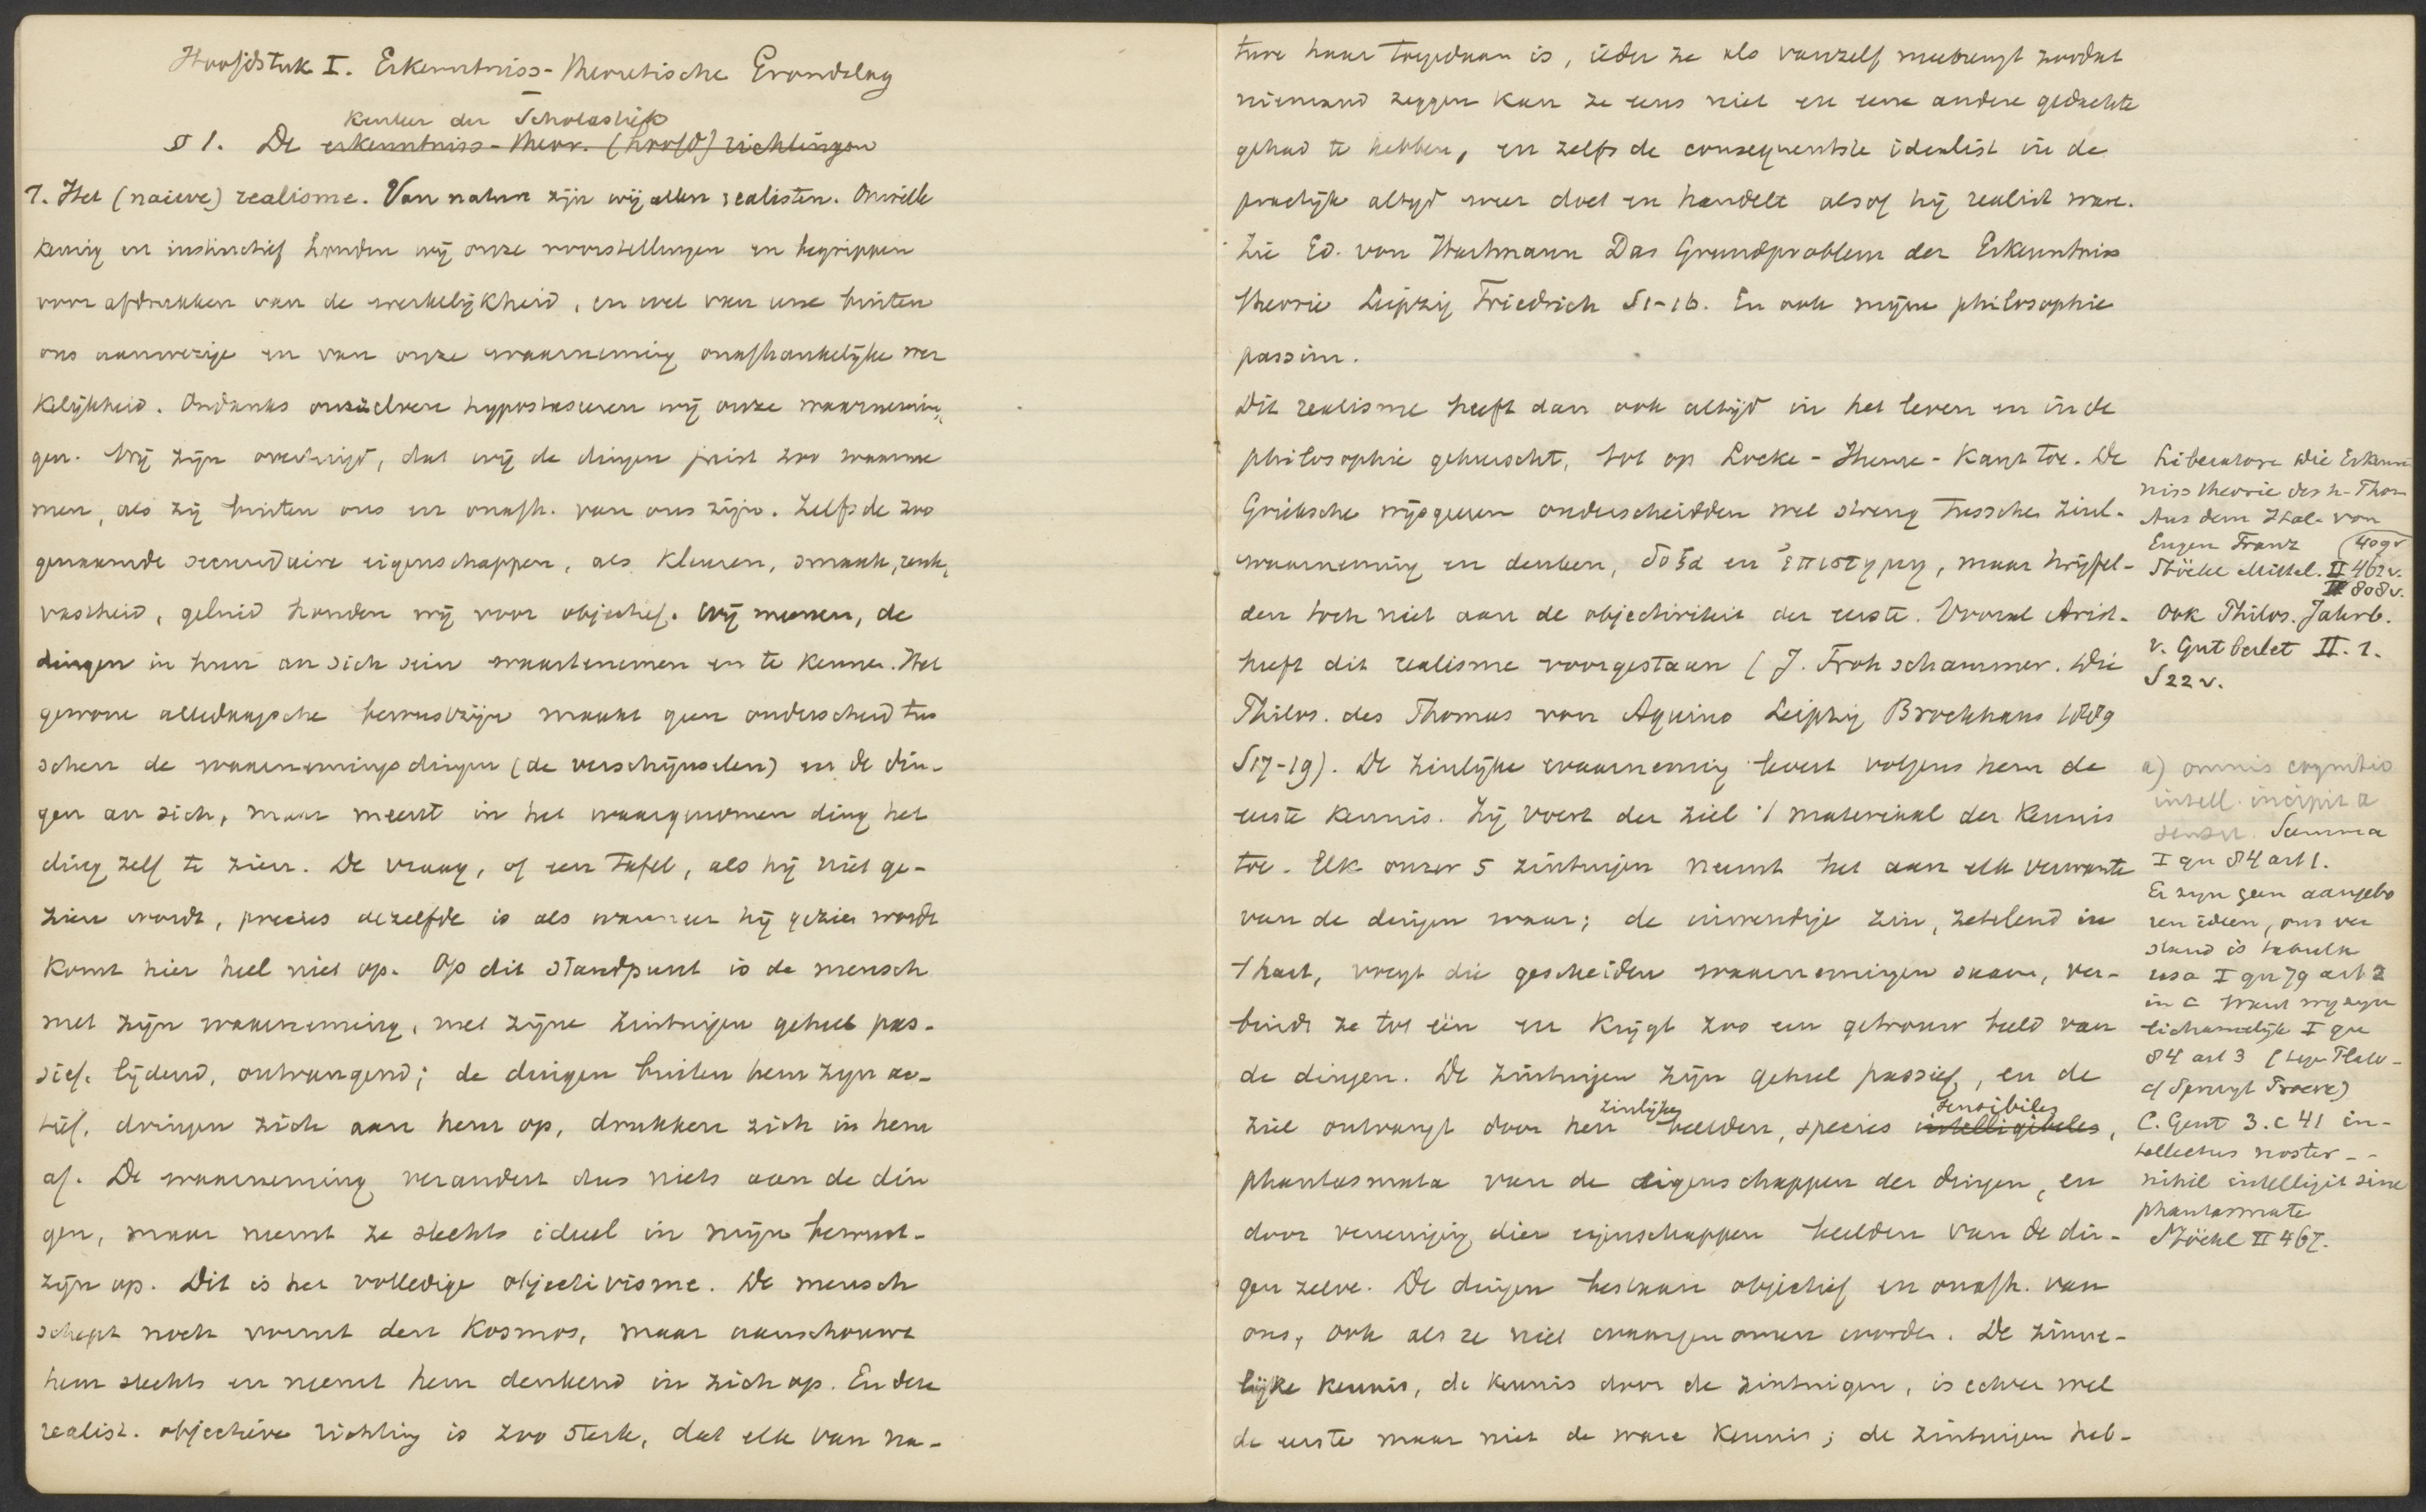 Hoofdstuk I. Erkenntniss-theoretische Grondslag
Kenleer der Scholastiek
§ 1. De erkenntniss-theor. (hoofd) richtingen
1. Het (naieve) realisme. Van nature zijn wij allen realisten. Onwille
keurig en instinctief houden wij onze voorstellingen en begrippen
voor afdrukken van de werkelijkheid, en wel van eene buiten
ons aanwezige en van onze waarneming onafhankelijke wer
kelijkheid. Ondanks onszelven hypostaseren wij onze waarnemin
gen. Wij zijn overtuigd, dat wij de dingen juist zoo waarne
men, als zij buiten ons en onafh. van ons zijn. Zelfs de zoo
genaamde secundaire eigenschappen, als kleuren, smaak, reuk,
vastheid, geluid houden wij voor objectief. Wij meenen, de
dingen in hun an sich sein waartenemen en te kennen. Het
gewone alledaagsche bewustzijn maakt geen onderscheid tus
schen de waarnemingsdingen (de verschijnselen) en de din-
gen an sich, maar meent in het waargenomen ding het
ding zelf te zien. De vraag, of een tafel, als hij niet ge-
zien wordt, precies dezelfde is als wanneer hij gezien wordt
komt hier heel niet op. Op dit standpunt is de mensch
met zijn waarneming, met zijne zintuigen geheel pas-
sief. lijdend, ontvangend; de dingen buiten hem zijn ac-
tief, dringen zich aan hem op, drukken zich in hem
af. De waarneming verandert dus niets aan de din
gen, maar neemt ze slechts ideeel in mijn bewust-
zijn op. Dit is het volledige objectivisme. De mensch
schept noch vormt den Kosmos, maar aanschouwt
hem slechts en neemt hem denkend in zich op. En deze
realist. objectieve richting is zoo sterk, dat elk van na-
ture haar toegedaan is, ieder ze als vanzelf meebrengt zoodat
niemand zeggen kan ze eens niet en eene andere gedachte
gehad te hebben, en zelfs de consequentste idealist in de
practijk altijd weer doet en handelt alsof hij realist ware.
Zie Ed. von Hartmann Das Grundproblem der Erkenntniss
theorie Leipzig Friedrich S1-16. En ook mijne philosophie
passim.
Dit realisme heeft dan ook altijd in het leven en in de
philosophie geheerscht, tot op Locke-Hume-Kant toe. De
Grieksche wijsgeeren onderscheidden wel streng tusschen zinl.
waarneming en denken, δοξα en ἐπιστημη, maar twijfel-
den toch niet aan de objectiviteit der eerste. Vooral Arist.
heeft dit realisme voorgestaan (J. Frohschammer. Die
Philos. des Thomas von Aquino Leipzig Brockhaus 1889
S17-19). De zinlijke waarneming levert volgens hem de
eerste kennis. Zij voert der ziel 't materiaal der kennis
toe. Elk onzer 5 zintuigen neemt het aan elk verwante
van de dingen waar; de inwendige zin, zetelend in
't hart, voegt die gescheiden waarnemingen saam, ver-
bindt ze tot één en krijgt zoo een getrouw beeld van
de dingen. De zintuigen zijn geheel passief, en de
zinlijke sensibiles
ziel ontvangt door hen beelden, species intelligibeles,
phantasmata van de eigenschappen der dingen, en
door vereeniging dier eigenschappen beelden van de din-
gen zelve. De dingen bestaan objectief en onafh. van
ons, ook als ze niet waargenomen worden. De zinne-
lijke kennis, de kennis door de zintuigen, is echter wel
de eerste maar niet de ware kennis; de zintuigen heb-
Liberatore Die Erkennt
nisstheorie des h. Thom
Aus dem Ital. von
Eugen Franz
Stöckl Mittel. II 462 v.
III 808 v.
Ook Philos. Jahrb.
v. Gutberlet II. 1.
S 22 v.
a) omnis cognitio
intell. incipit a
sensu. Summa
I qu 84 art 1.
Er zijn geen aangebo
ren ideen, ons ver
stand is tabula
rasa I qu 79 art 2
in c want wij zijn
lichamelijk I qu
84 art 3 (tegen Plato-
C. Gent 3. c 41 in-
tellectus noster --
nihil intelligit sine
phantasmate
Stöckl II 467.